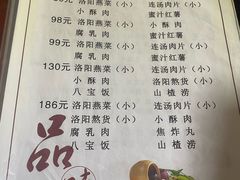 洛阳燕菜(小) 连汤肉片(小)
小酥肉 蜜汁红薯
98元 洛阳燕菜(小) 连汤肉片(小)
腐乳肉 蜜汁红薯
99元 洛阳燕菜(小) 连汤肉片(小)
小酥肉 蜜汁红薯
130元 洛阳燕菜(小) 连汤肉片(小)
小酥肉 腐乳肉
八宝饭 山楂涝
186元 洛阳燕菜(小) 连汤肉片(小)
洛阳熬货 洛阳熬货(小)
腐乳肉 焦炸丸
八宝饭 山楂涝
品